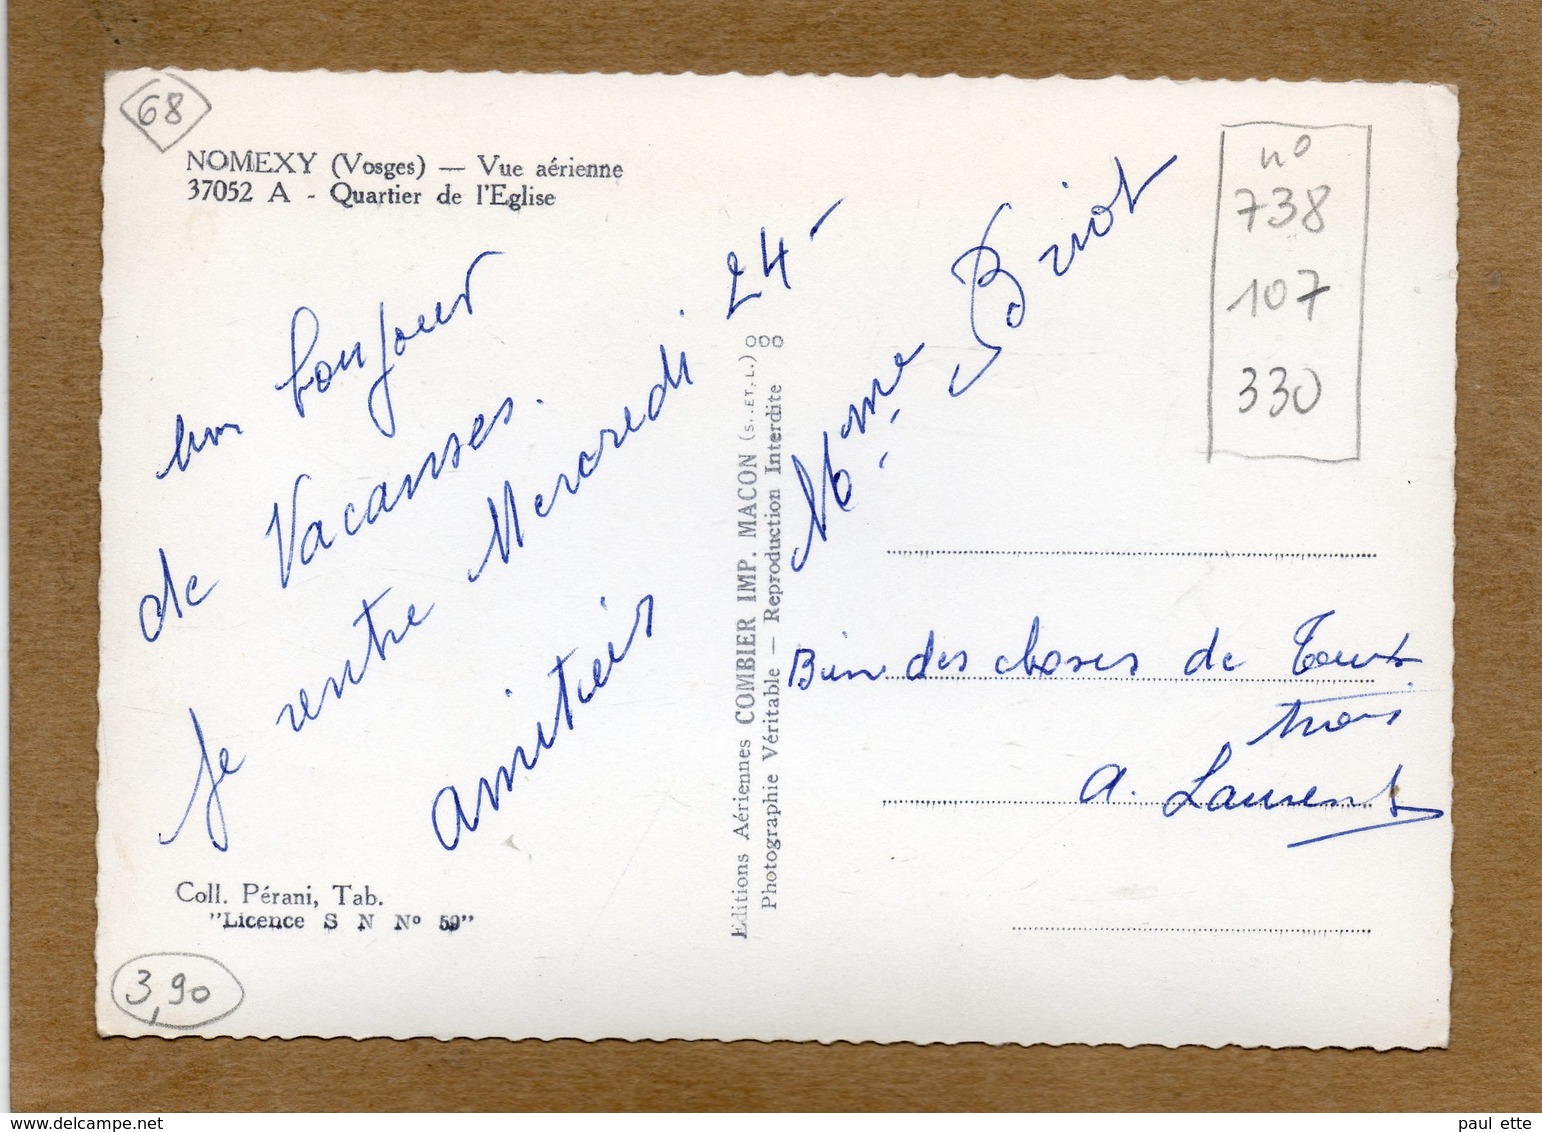 68
NOMEXY (Vosges) — Vue aérienne
37052 A - Quartier de l'Eglise
bon bonjour
de Vacanses.
Je rentre Mercredi 24-
amitiés
Coll. Pérani, Tab.
"Licence S N N° 59"
3,90
Editions Aériennes COMBIER IMP. MACON (S.-ET-L.)
Photographie Véritable — Reproduction Interdite
Mme Briot
n°
738
107
330
Bien des choses de Tous
trois
A. Laurent
paul ette